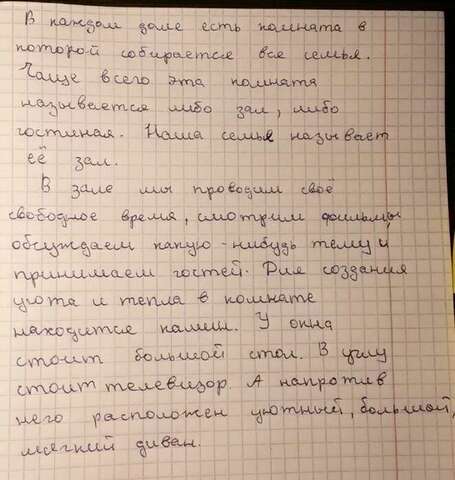 В каждом доме есть комната в
которой собирается вся семья.
Чаще всего эта комната
называется либо зал, либо
гостиная. Наша семья называет
её зал.
В зале мы проводим своё
свободное время, смотрим фильмы,
обсуждаем какую-нибудь тему и
принимаем гостей. Для создания
уюта и тепла в комнате
находится камин. У окна
стоит большой стол. В углу
стоит телевизор. А напротив
него расположен уютный, большой,
мягкий диван.